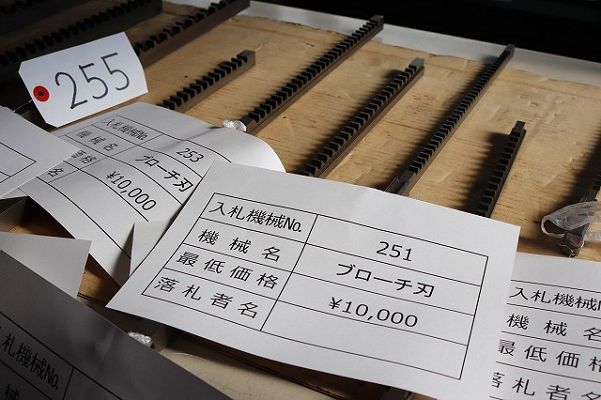 255
入札機械No.
253
機械名
ブローチ刃
価格
¥10,000
入札機械No.
251
機械名
ブローチ刃
最低価格
¥10,000
落札者名
入札機械No.
機械名
最低価格
落札者名
入札機械No.